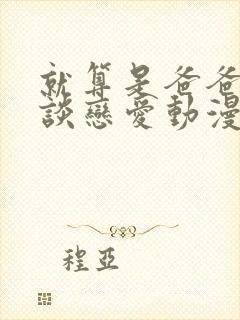 就算是爸爸
談戀愛動漫
程亞